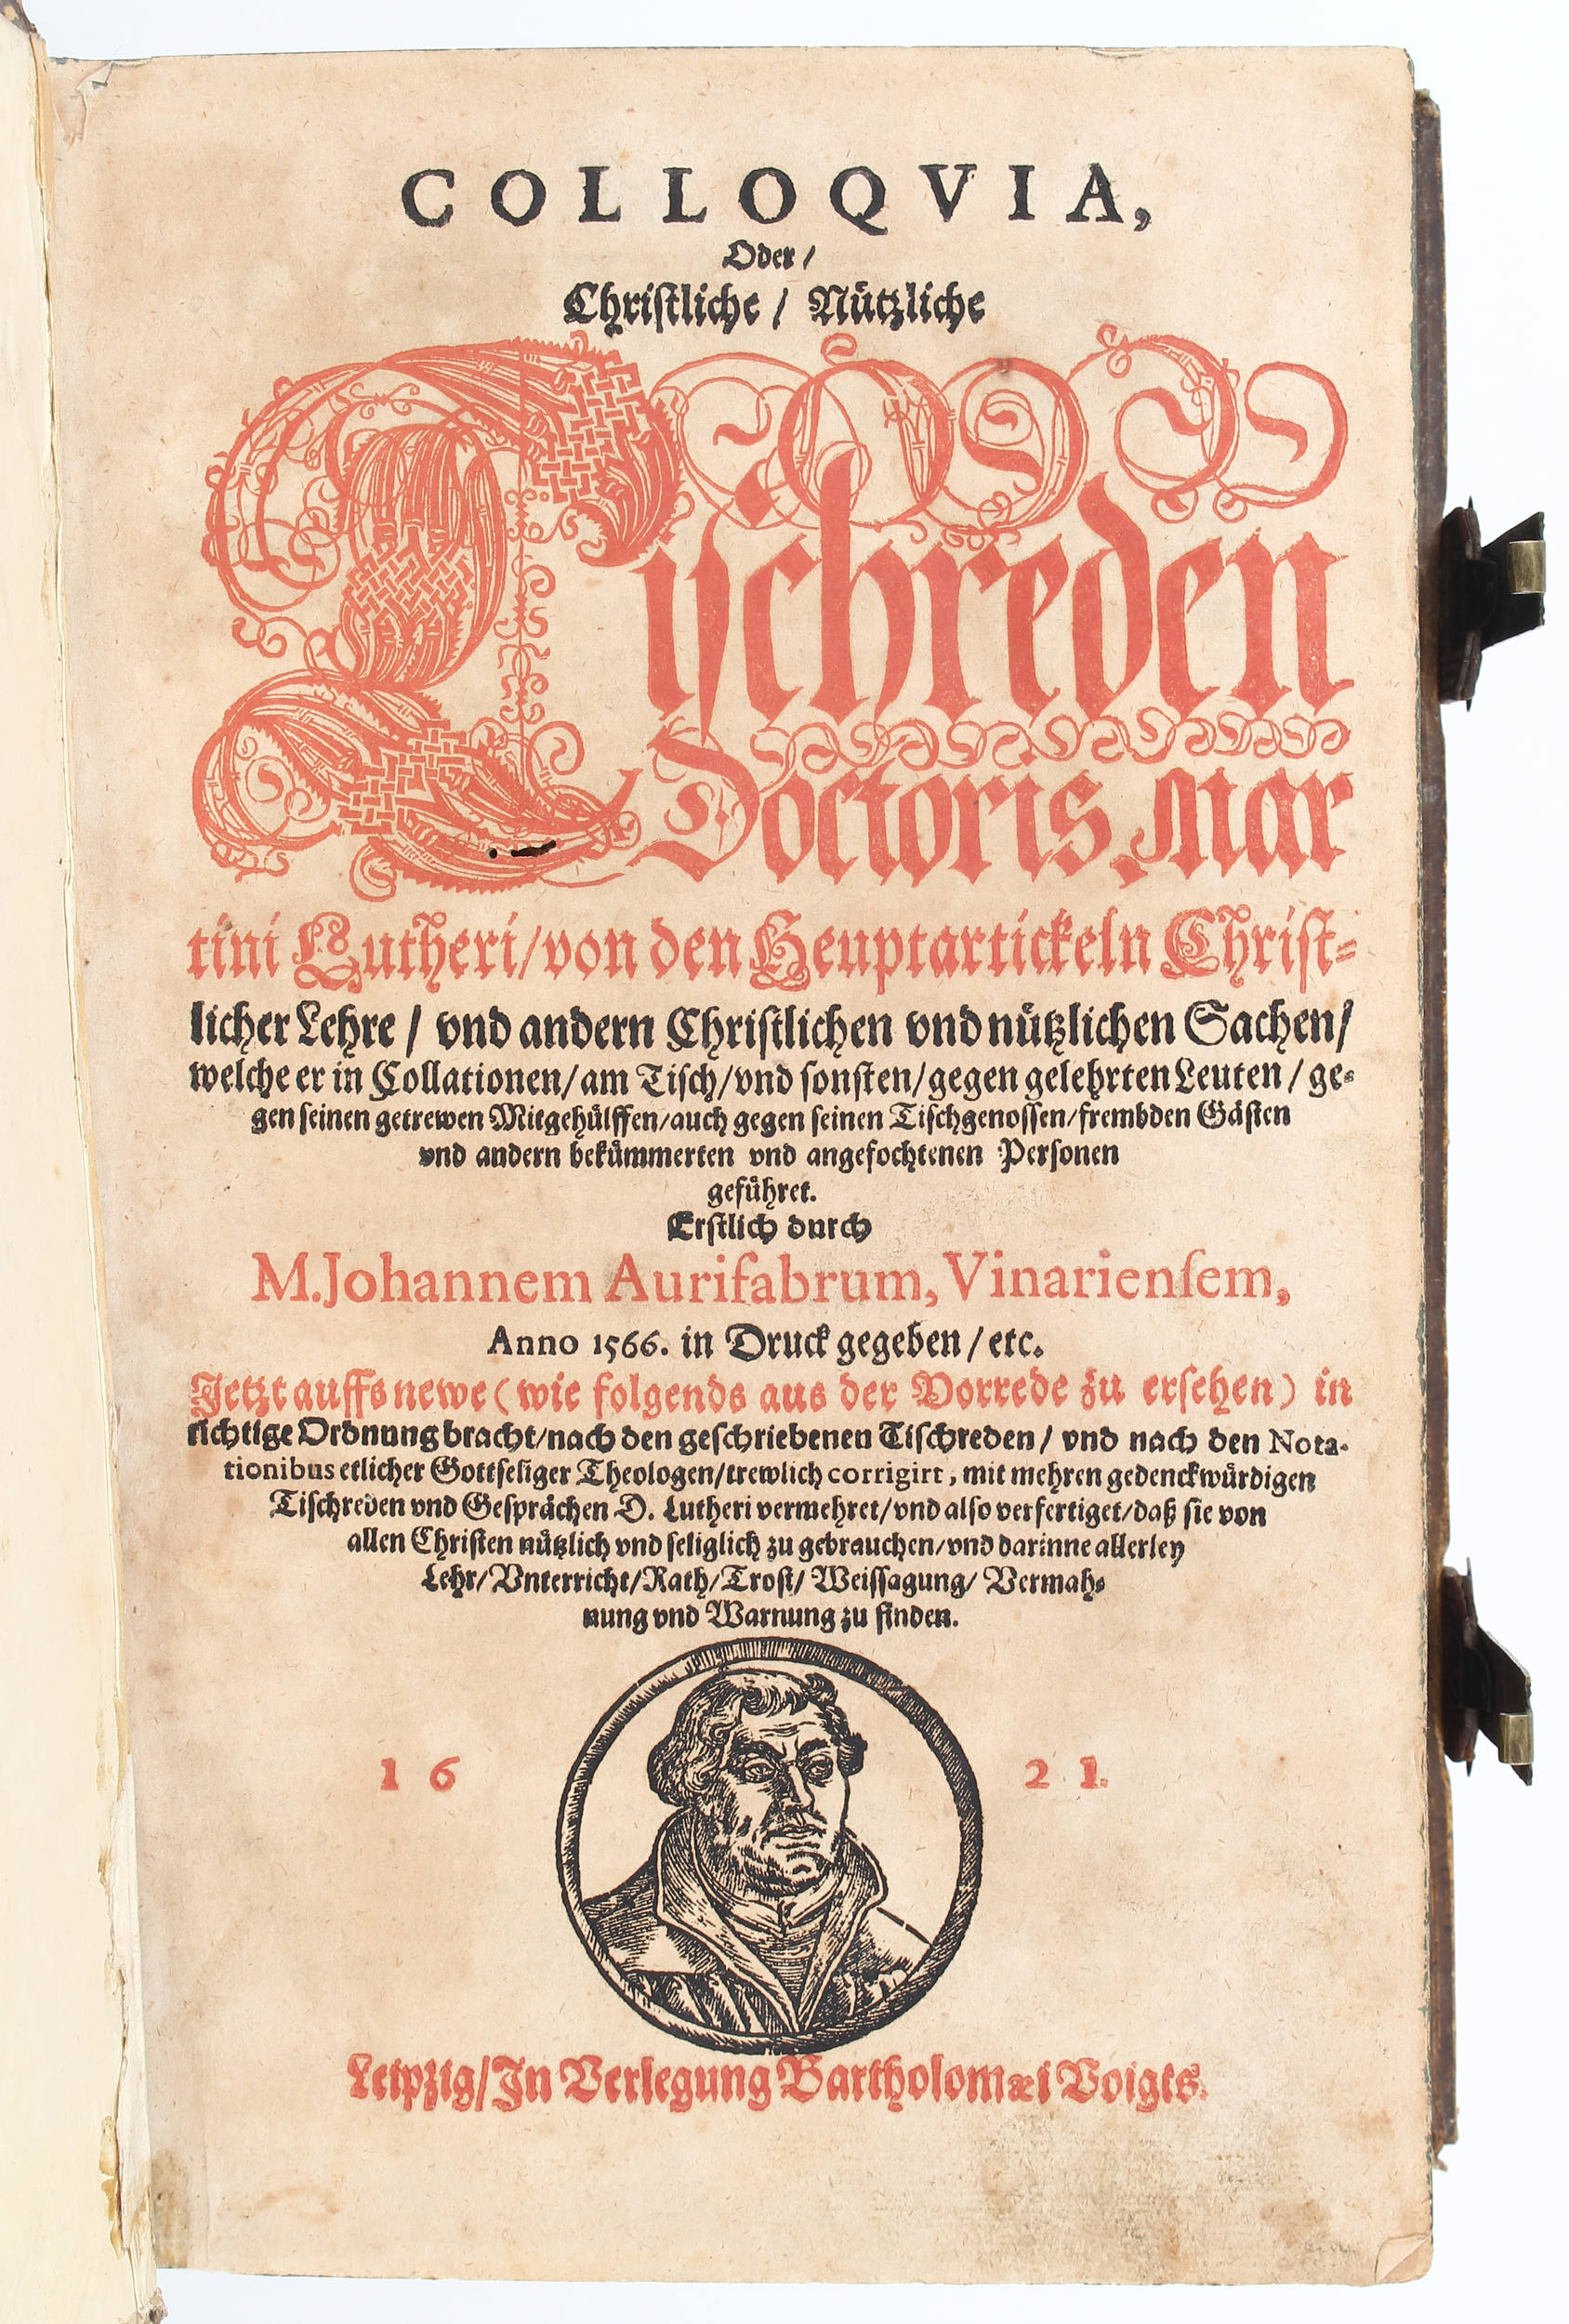 COLLOQVIA,
Oder /
Christliche / Nützliche
Tyschreden
Doctoris Mar
tini Lutheri / von den Heuptartickeln Christ-
licher Lehre / vnd andern Christlichen vnd nützlichen Sachen /
welche er in Collationen / am Tisch / vnd sonsten / gegen gelehrten Leuten / ge-
gen seinen getrewen Mitgehülffen / auch gegen seinen Tischgenossen / frembden Gästen
vnd andern bekümmerten vnd angefochtenen Personen
geführet.
Erstlich durch
M. Johannem Aurifabrum, Vinariensem,
Anno 1566. in Druck gegeben / etc.
Jetzt auffs newe (wie folgends aus der Vorrede zu ersehen) in
richtige Ordnung bracht / nach den geschriebenen Tischreden / vnd nach den Nota-
tionibus etlicher Gottseliger Theologen / trewlich corrigirt, mit mehren gedenckwürdigen
Tischreden vnd Gesprächen D. Lutheri vermehret / vnd also verfertiget / daß sie von
allen Christen nützlich vnd seliglich zu gebrauchen / vnd darinne allerley
Lehr / Vnterricht / Rath / Trost / Weissagung / Vermah-
nung vnd Warnung zu finden.
16 21.
Leipzig / In Verlegung Bartholomæi Voigts.